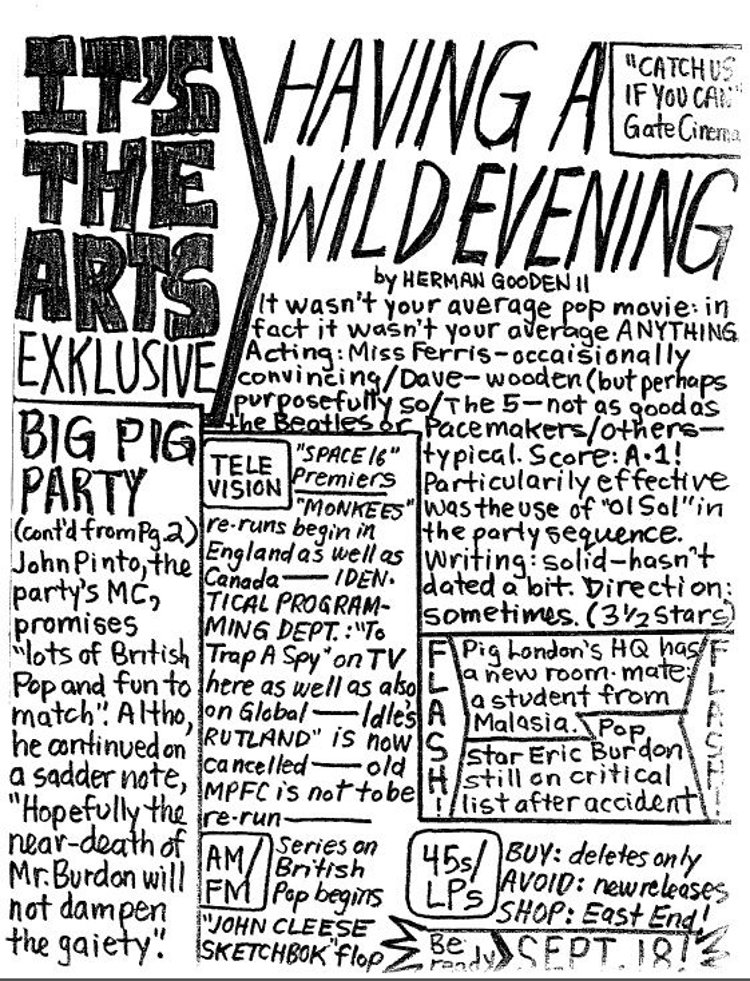 IT'S
THE
ARTS
EXKLUSIVE
HAVING A
WILD EVENING
"CATCH US
IF YOU CAN"
Gate Cinema
by HERMAN GOODEN II
It wasn't your average pop movie: in
fact it wasn't your average ANYTHING
Acting: Miss Ferris-occaisionally
convincing/Dave-wooden (but perhaps
purposefully so/The 5-not as good as
the Beatles or Pacemakers/others-
typical. Score: A.1!
Particularily effective
was the use of "ol Sol" in
the party sequence.
Writing: solid-hasn't
dated a bit. Direction:
sometimes. (3 1/2 stars)
BIG PIG
PARTY
(cont'd from Pg. 2)
John Pinto, the
party's MC,
promises
"lots of British
Pop and fun to
match". Altho,
he continued on
a sadder note,
"Hopefully the
near-death of
Mr. Burdon will
not dampen
the gaiety".
TELE
VISION
"SPACE 16"
Premiers
"MONKEES"
re-runs begin in
England as well as
Canada — IDEN-
TICAL PROGRAM-
MING DEPT.: "To
Trap A Spy" on TV
here as well as also
on Global — Idle's
RUTLAND" is now
cancelled — old
MPFC is not to be
re-run —
AM/
FM
Series on
British
Pop begins
"JOHN CLEESE
SKETCHBOK" flop
FLASH!
Pig London's HQ has
a new room-mate:
a student from
Malasia. Pop
star Eric Burdon
still on critical
list after accident
FLASH!
45s/
LPs
BUY: deletes only
AVOID: new releases
SHOP: East End!
Be
ready
SEPT. 18!